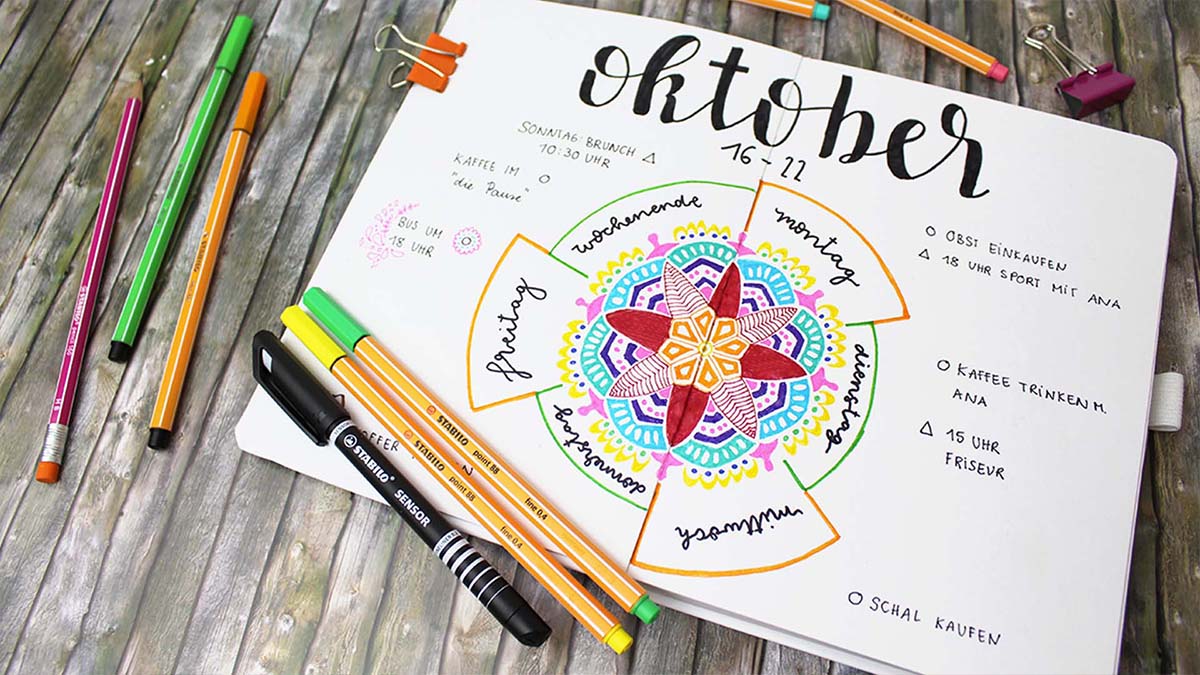 oktober
16-22
SONNTAG: BRUNCH
10:30 UHR
KAFFEE IM
"die Pause"
BUS UM
18 UHR
wochenende
montag
dienstag
mittwoch
donnerstag
freitag
OBST EINKAUFEN
18 UHR SPORT MIT ANA
KAFFEE TRINKEN M.
ANA
15 UHR
FRISEUR
SCHAL KAUFEN
STABILO
SENSOR
STABILO point 88 fine 0.4
STABILO point 88 fine 0.4